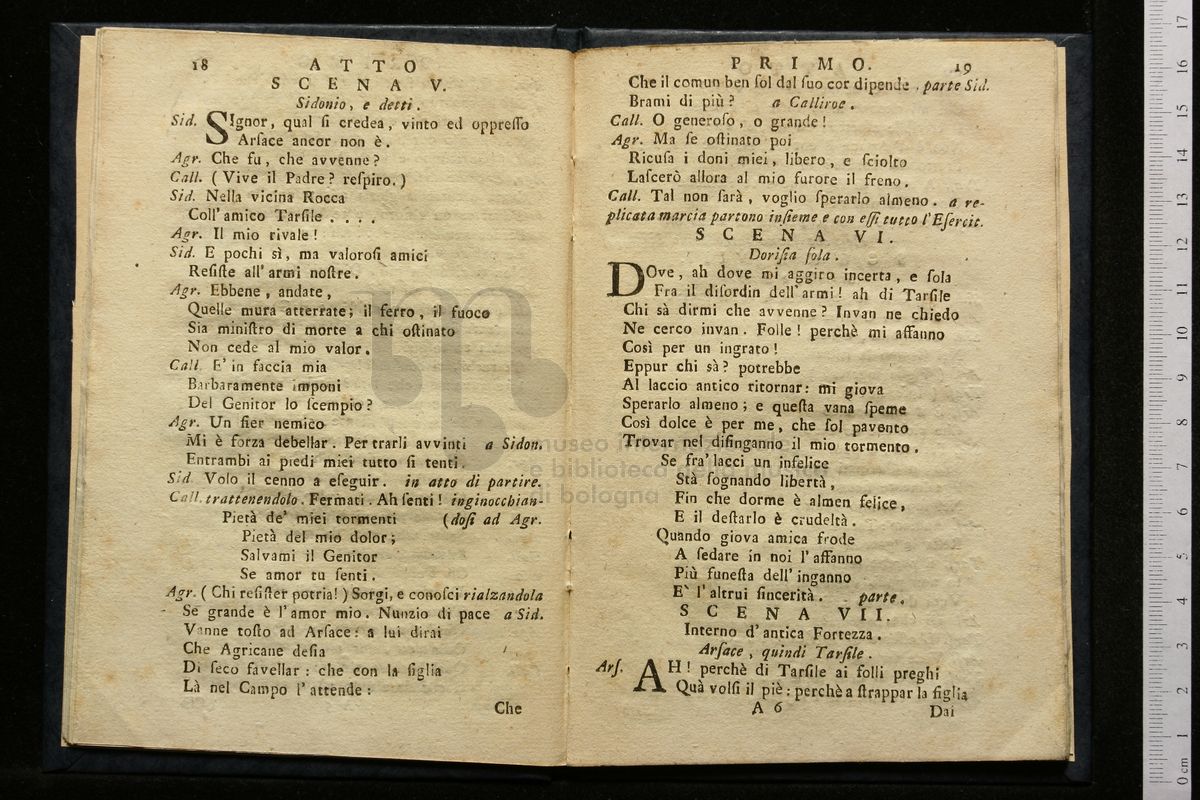 18 ATTO
SCENA V.
Sidonio, e detti.
Sid. SIgnor, qual ſi credea, vinto ed oppreſſo
Arſace ancor non è.
Agr. Che fu, che avvenne?
Call. (Vive il Padre? reſpiro.)
Sid. Nella vicina Rocca
Coll' amico Tarſile . . . .
Agr. Il mio rivale!
Sid. E pochi sì, ma valoroſi amici
Reſiſte all' armi noſtre.
Agr. Ebbene, andate,
Quelle mura atterrate; il ferro, il fuoco
Sia miniſtro di morte a chi oſtinato
Non cede al mio valor.
Call. E' in faccia mia
Barbaramente imponi
Del Genitor lo ſcempio?
Agr. Un fier nemico
Mi è forza debellar. Per trarli avvinti a Sidon.
Entrambi ai piedi miei tutto ſi tenti.
Sid. Volo il cenno a eſeguir. in atto di partire.
Call. trattenendolo. Fermati. Ah ſenti! inginocchian-
Pietà de' miei tormenti (doſi ad Agr.
Pietà del mio dolor;
Salvami il Genitor
Se amor tu ſenti.
Agr. (Chi reſiſter potria!) Sorgi, e conoſci rialzandola
Se grande è l' amor mio. Nunzio di pace a Sid.
Vanne toſto ad Arſace: a lui dirai
Che Agricane deſia
Di ſeco favellar: che con la figlia
Là nel Campo l' attende:
Che
PRIMO. 19
Che il comun ben ſol dal ſuo cor dipende. parte Sid.
Brami di più? a Calliroe.
Call. O generoſo, o grande!
Agr. Ma ſe oſtinato poi
Ricuſa i doni miei, libero, e ſciolto
Laſcerò allora al mio furore il freno.
Call. Tal non ſarà, voglio ſperarlo almeno. a re-
plicata marcia partono inſieme e con eſſi tutto l' Eſercit.
SCENA VI.
Doriſia ſola.
DOve, ah dove mi aggiro incerta, e ſola
Fra il diſordin dell' armi! ah di Tarſile
Chi sà dirmi che avvenne? Invan ne chiedo
Ne cerco invan. Folle! perchè mi affanno
Così per un ingrato!
Eppur chi sà? potrebbe
Al laccio antico ritornar: mi giova
Sperarlo almeno; e queſta vana ſpeme
Così dolce è per me, che ſol pavento
Trovar nel diſinganno il mio tormento.
Se fra' lacci un infelice
Stà ſognando libertà,
Fin che dorme è almen felice,
E il deſtarlo è crudeltà.
Quando giova amica frode
A ſedare in noi l' affanno
Più funeſta dell' inganno
E' l' altrui ſincerità. parte.
SCENA VII.
Interno d' antica Fortezza.
Arſace, quindi Tarſile.
Arſ. AH! perchè di Tarſile ai folli preghi
Quà volſi il piè: perchè a ſtrappar la figlia
A 6 Dai
museo
e biblioteca della
di bologna
0 cm 1 2 3 4 5 6 7 8 9 10 11 12 13 14 15 16 17